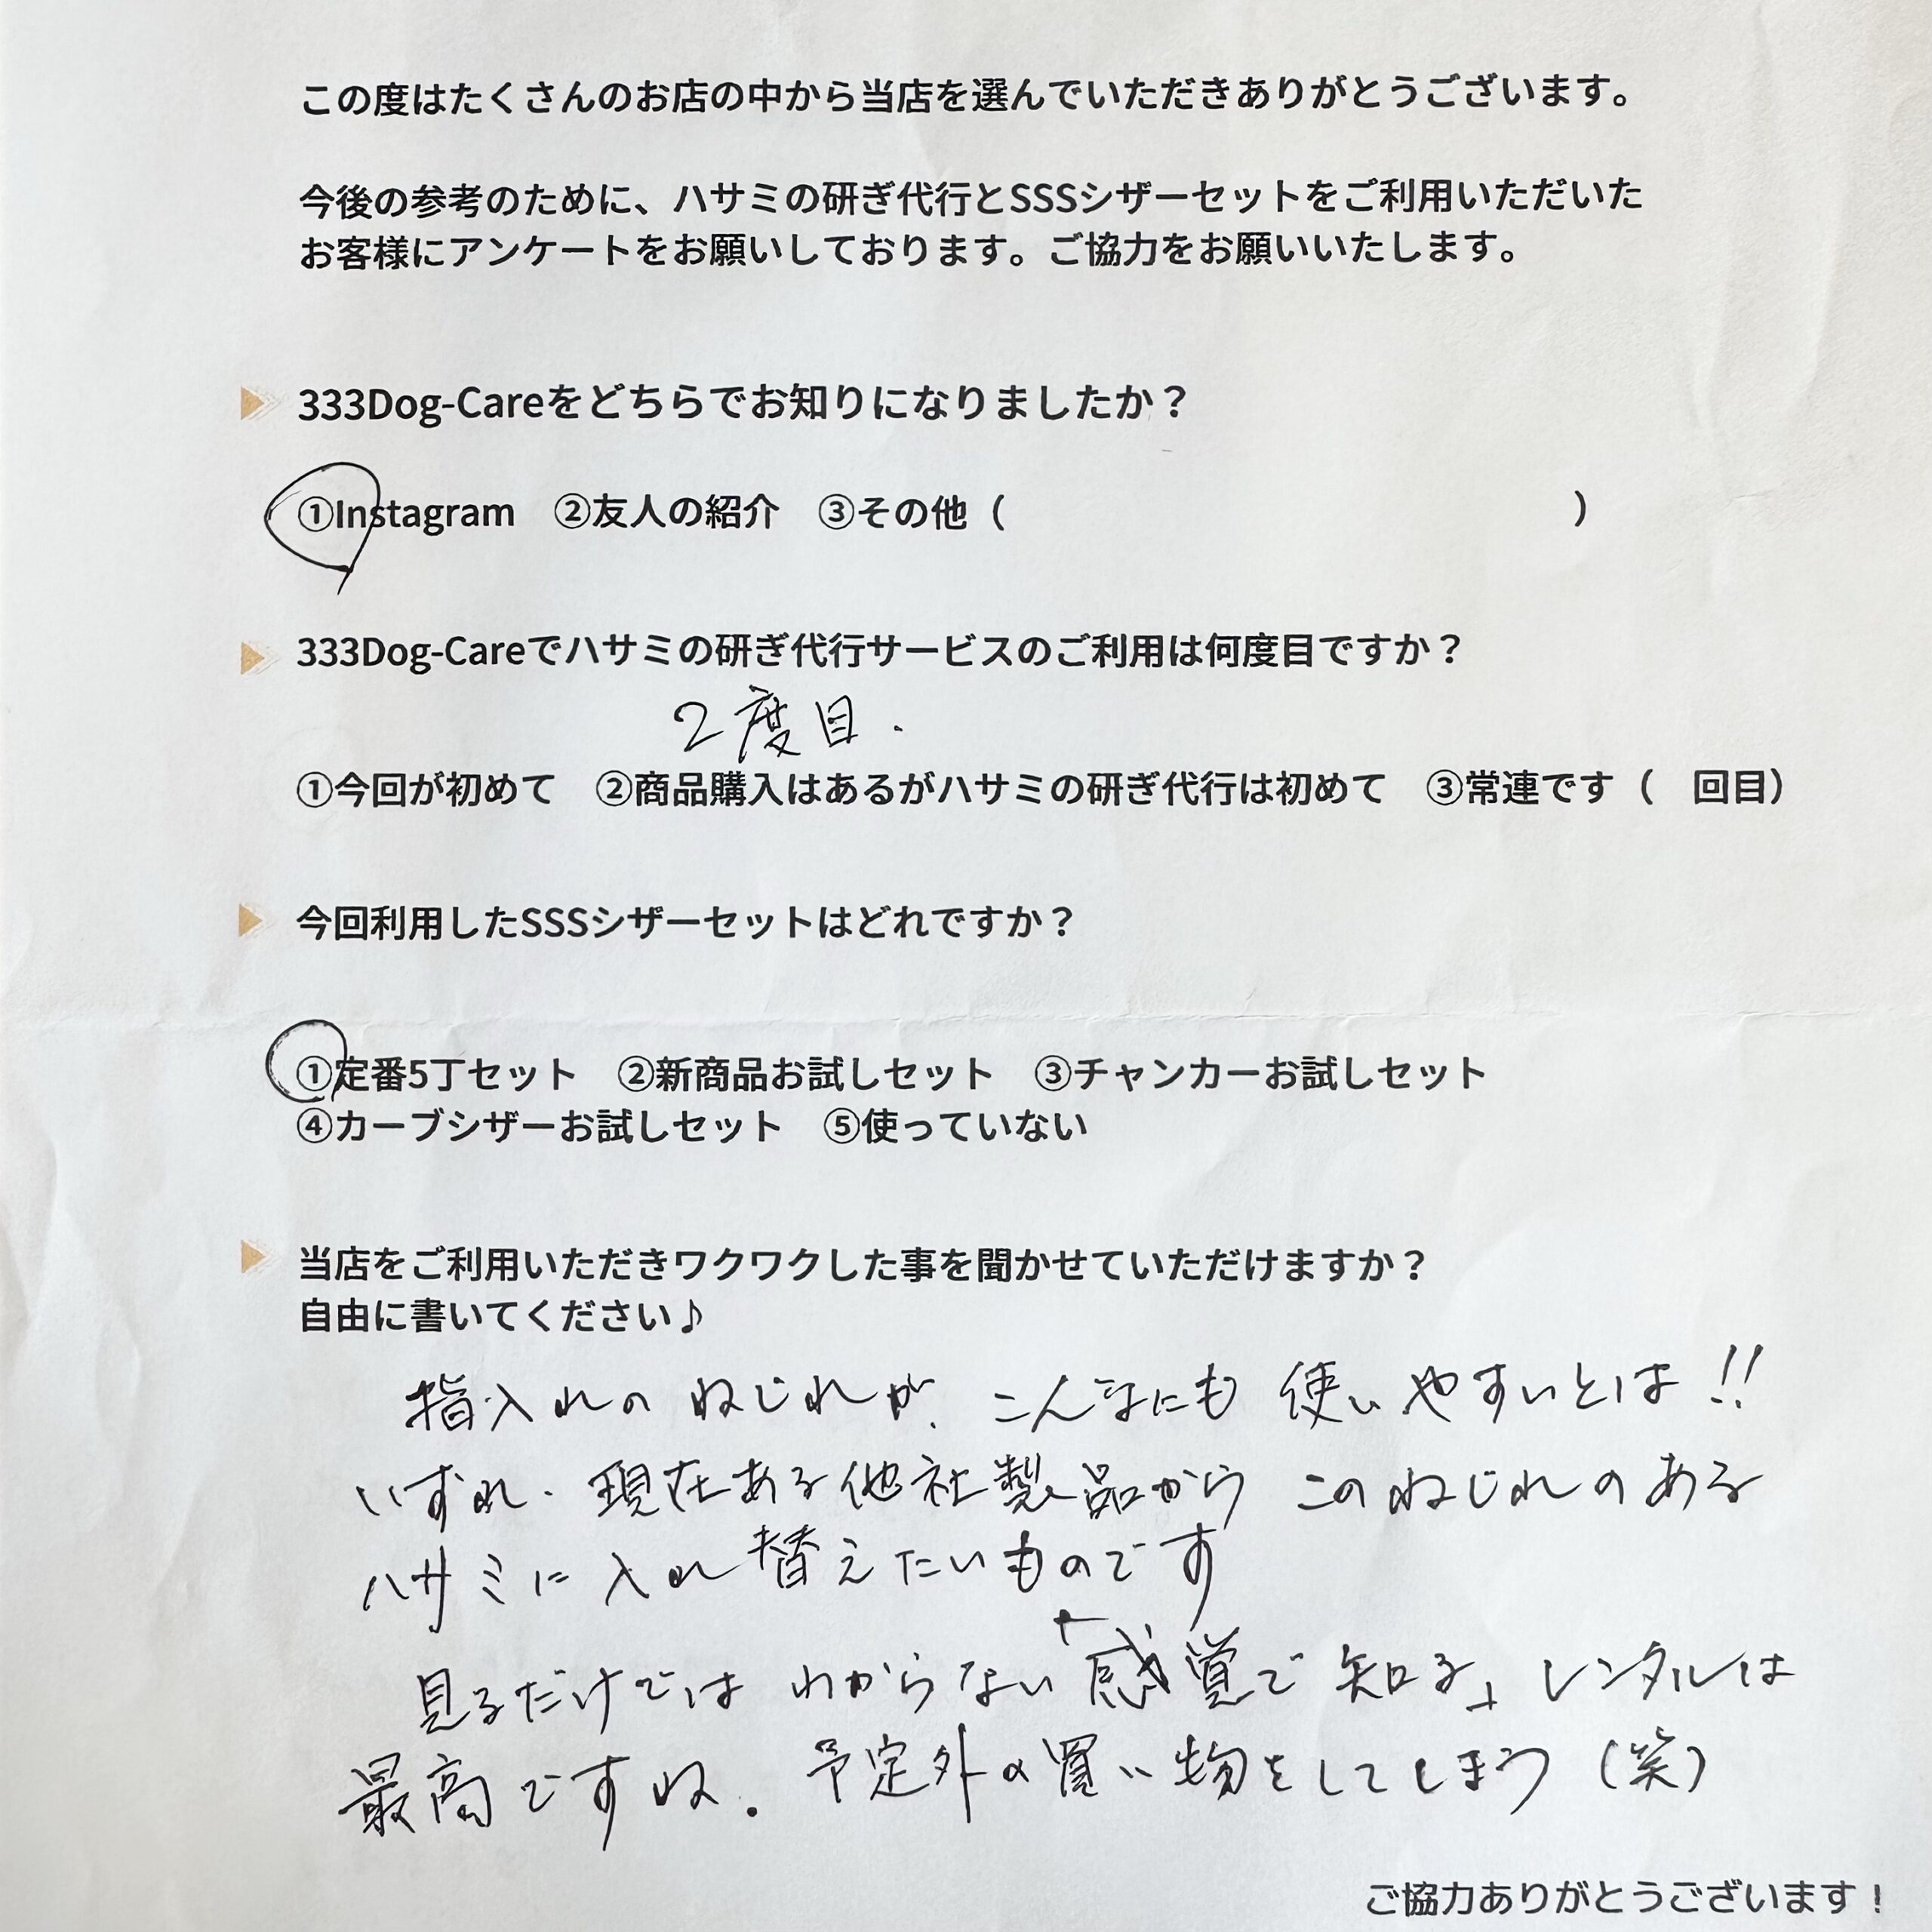 この度はたくさんのお店の中から当店を選んでいただきありがとうございます。
今後の参考のために、ハサミの研ぎ代行とSSSシザーセットをご利用いただいた
お客様にアンケートをお願いしております。ご協力をお願いいたします。
333Dog-Careをどちらでお知りになりましたか？
①Instagram　②友人の紹介　③その他（　　　　　　　　　　　　　　　）
333Dog-Careでハサミの研ぎ代行サービスのご利用は何度目ですか？
2度目.
①今回が初めて　②商品購入はあるがハサミの研ぎ代行は初めて　③常連です（　回目）
今回利用したSSSシザーセットはどれですか？
①定番5丁セット　②新商品お試しセット　③チャンカーお試しセット
④カーブシザーお試しセット　⑤使っていない
当店をご利用いただきワクワクした事を聞かせていただけますか？
自由に書いてください♪
指入れの ねじれが、こんなにも 使いやすいとは!!
いずれ、現在ある他社製品から このねじれのある
ハサミに入れ替えたいものです
見るだけでは わからない「感覚で知る」レンタルは
最高ですね. 予定外の買い物をしてしまう（笑）
ご協力ありがとうございます！